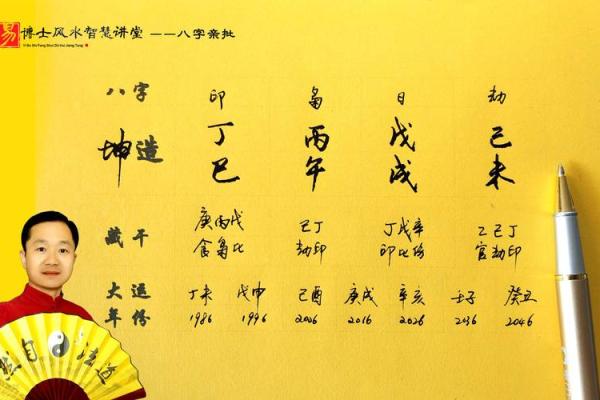 易 博士风水智慧讲堂 ——八字亲批
Yi Bo Shi Feng Shui Zhi Hui Jiang Tang
八字 印 枭 日 劫
坤造 丁 丙 戊 己
巳 午 戌 未
藏干 庚丙戊 己丁 丁戊辛 乙己丁
食枭比 劫印 印比伤 官劫印
大运 丁未 戊申 己酉 庚戌 辛亥 壬子 癸丑
年份 1986 1996 2006 2016 2026 2036 2046
然自 法道